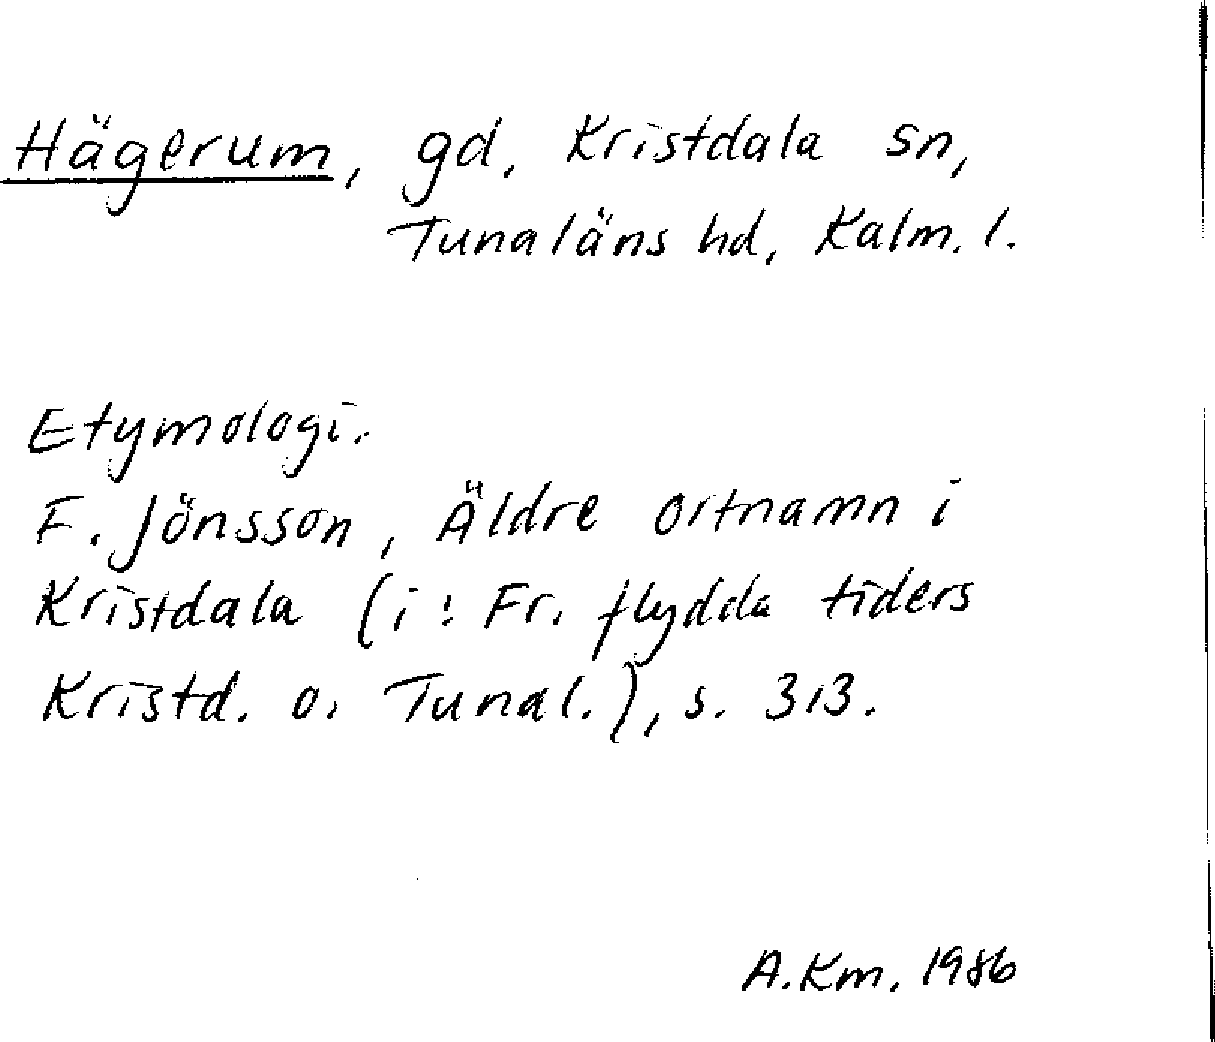 Hägerum, gd, Kristdala sn,
Tunaläns hd, Kalm. l.
Etymologi.
F. Jönsson, Äldre ortnamn i
Kristdala (i: Fr. flydda tiders
Kristd. o. Tunal.), s. 313.
A.Km. 1986